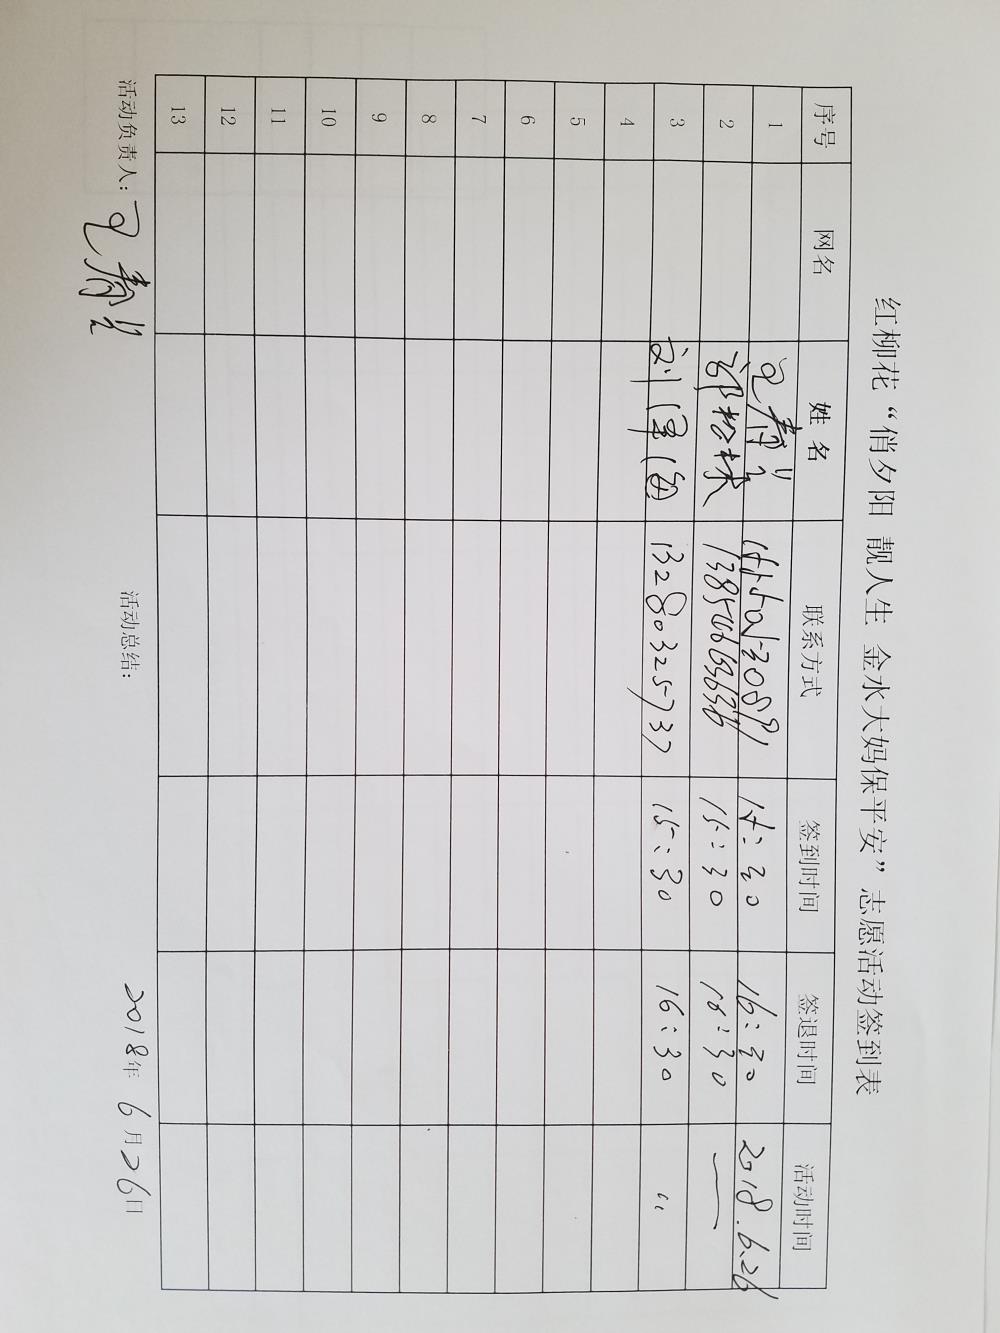 红柳花“俏夕阳 靓人生 金水大妈保平安”志愿活动签到表
序号 网名 姓名 联系方式 签到时间 签退时间 活动时间
1 15:30 16:30 2018.6.26
2 15:30 16:30 —
3 13280325737 15:30 16:30 〃
4
5
6
7
8
9
10
11
12
13
活动负责人: 活动总结: 2018年6月26日